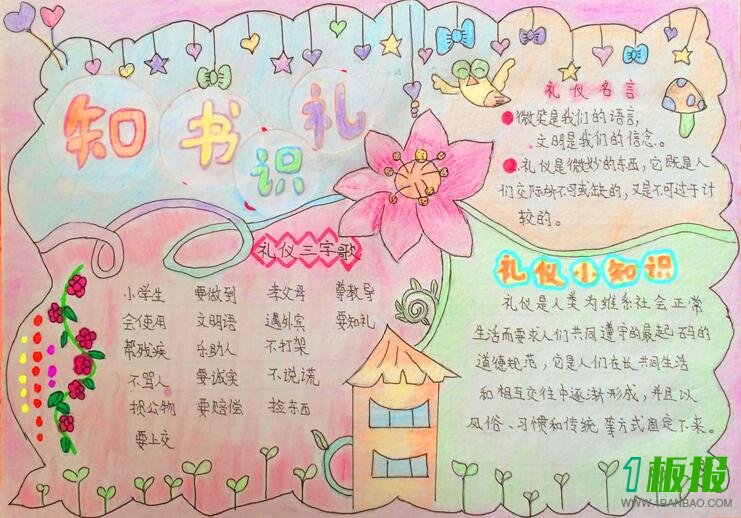 知书识礼
礼仪名言
微笑是我们的语言,
文明是我们的信念。
礼仪是微妙的东西,它既是人
们交际所不可或缺的,又是不可过于计
较的。
礼仪三字歌
小学生 要做到 孝父母 尊教导
会使用 文明语 遇外宾 要知礼
帮残疾 乐助人 不打架
不骂人 要诚实 不说谎
损公物 要赔偿 捡东西
要上交
礼仪小知识
礼仪是人类为维系社会正常
生活而要求人们共同遵守的最起码的
道德规范,它是人们在长共同生活
和相互交往中逐渐形成,并且以
风俗、习惯和传统等方式固定下来。
1板报
WWW.1BANBAO.COM